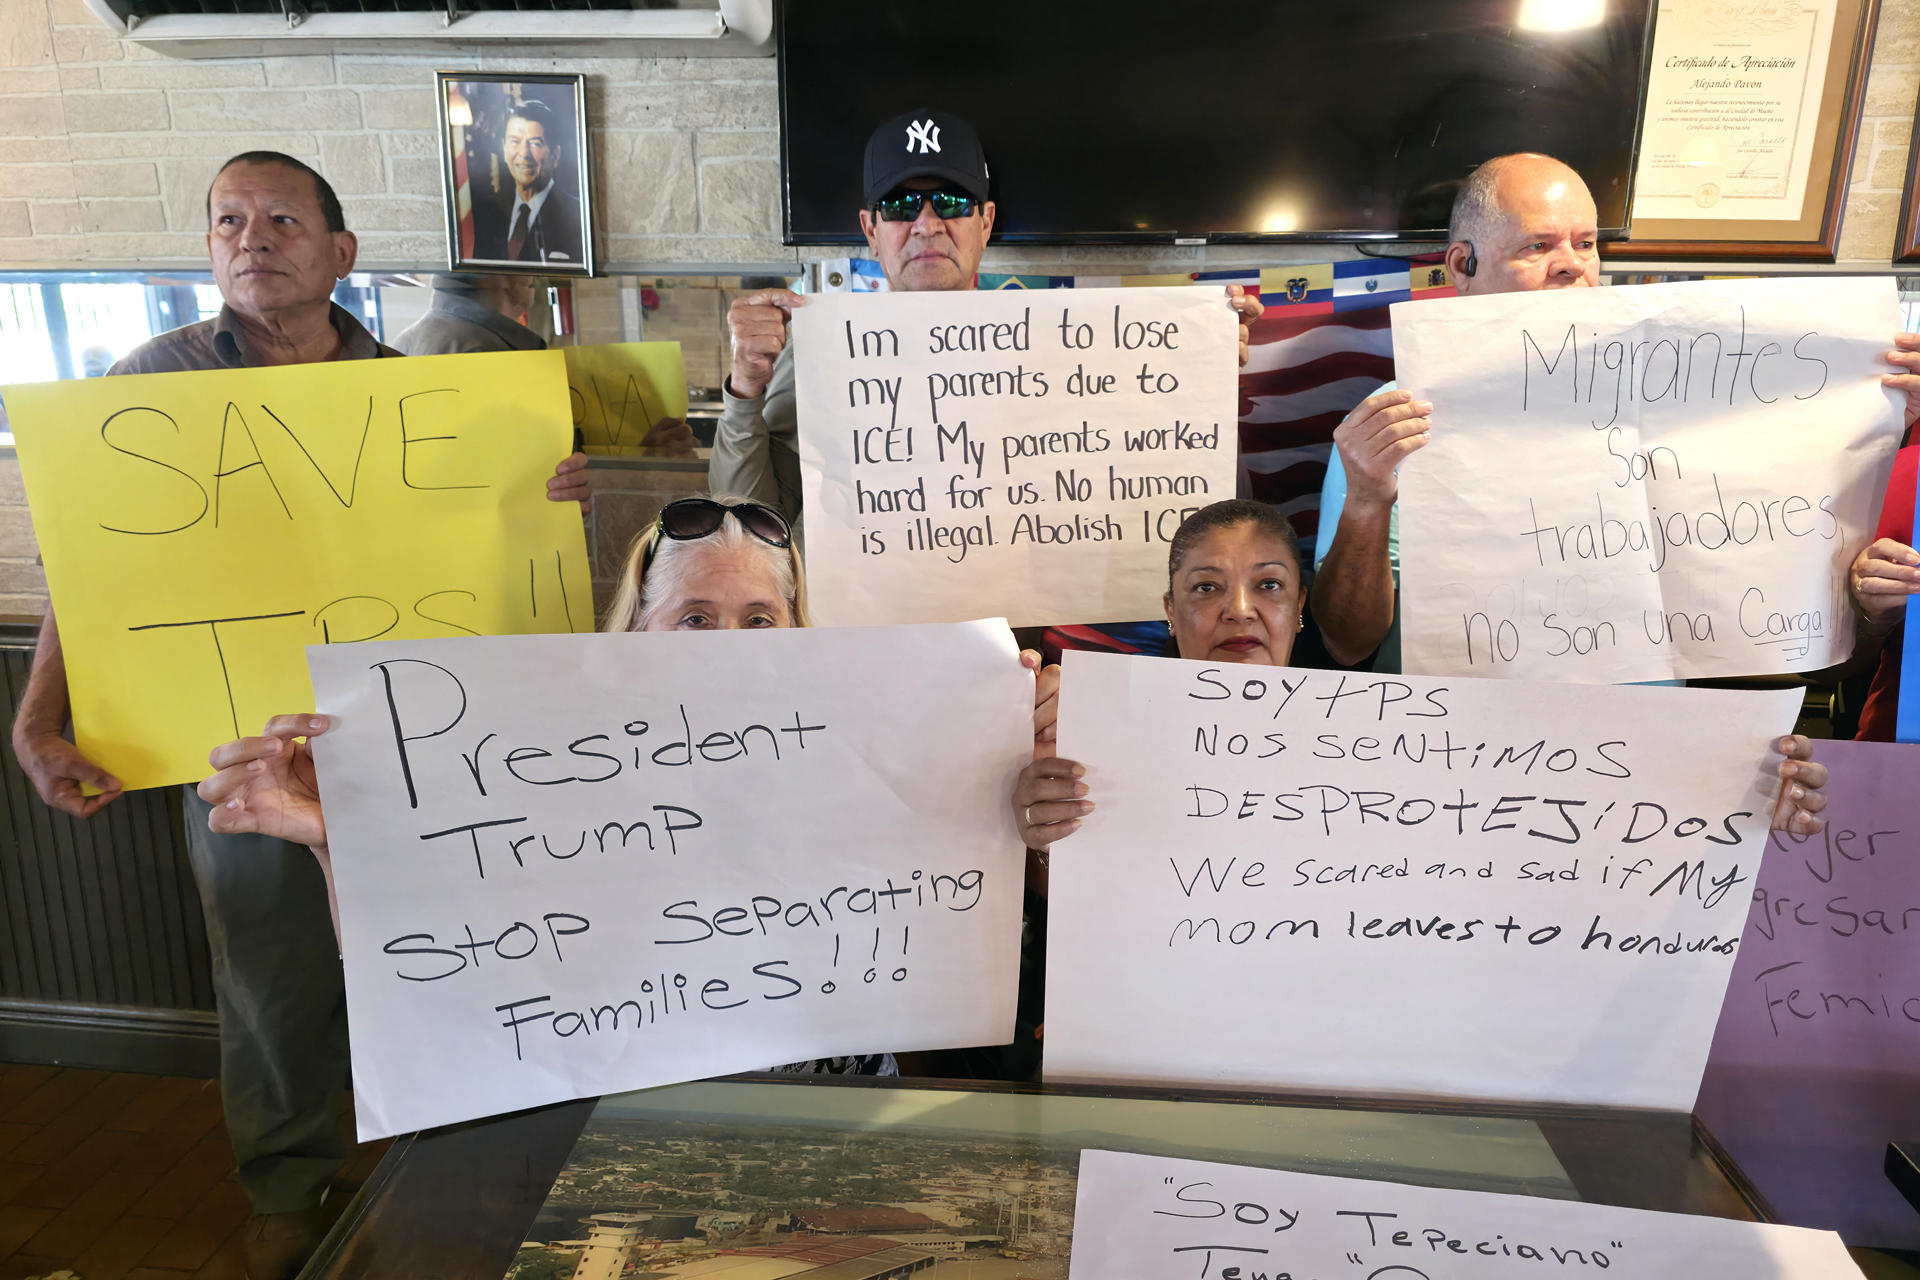 Certificado de Apreciación
Alejandro Pavon
NY
SAVE
TPS!!
Im scared to lose
my parents due to
ICE! My parents worked
hard for us. No human
is illegal. Abolish ICE
Migrantes
Son
trabajadores,
no son una Carga!!
President
Trump
Stop Separating
Families!!!
SOY TPS
NOS SENTIMOS
DESPROTEJIDOS
We scared and sad if My
mom leaves to honduras
gresar
Femi
"Soy Tepeciano"